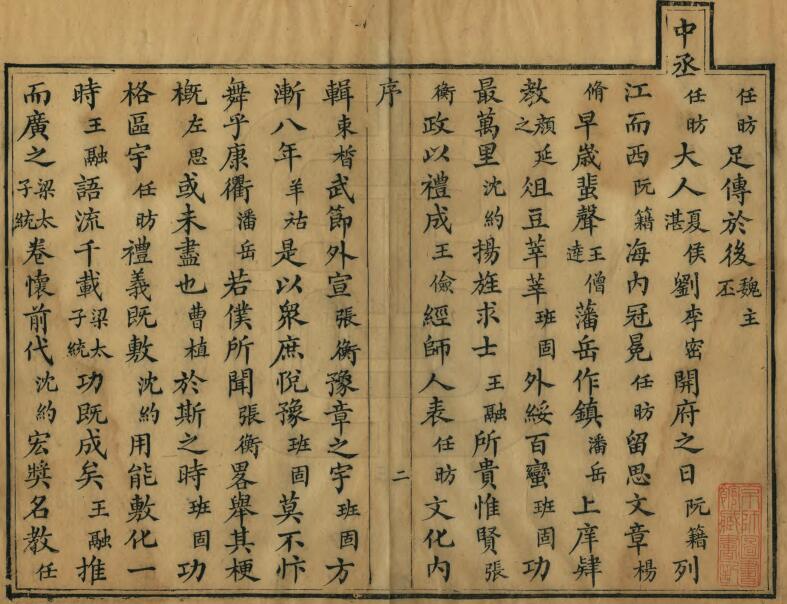 任昉足傳於後魏主丕
中丞任昉大人夏侯湛劉李密開府之日阮籍列
江而西阮籍海內冠冕任昉留思文章楊
脩早歲蜚聲王僧達藩岳作鎮潘岳上庠肄
教顏延之俎豆莘莘班固外綏百蠻班固功
最萬里沈約揚旌求士王融所貴惟賢張
衡政以禮成王儉經師人表任昉文化內
序 二
輯束晳武節外宣張衡豫章之宇班固方
漸八年羊祜是以眾庶悅豫班固莫不忭
舞乎康衢潘岳若僕所聞張衡畧舉其梗
槪左思或未盡也曹植於斯之時班固功
格區宇任昉禮義既敷沈約用能敷化一
時王融語流千載梁太子統功既成矣王融推
而廣之梁太子統卷懷前代沈約宏獎名教任